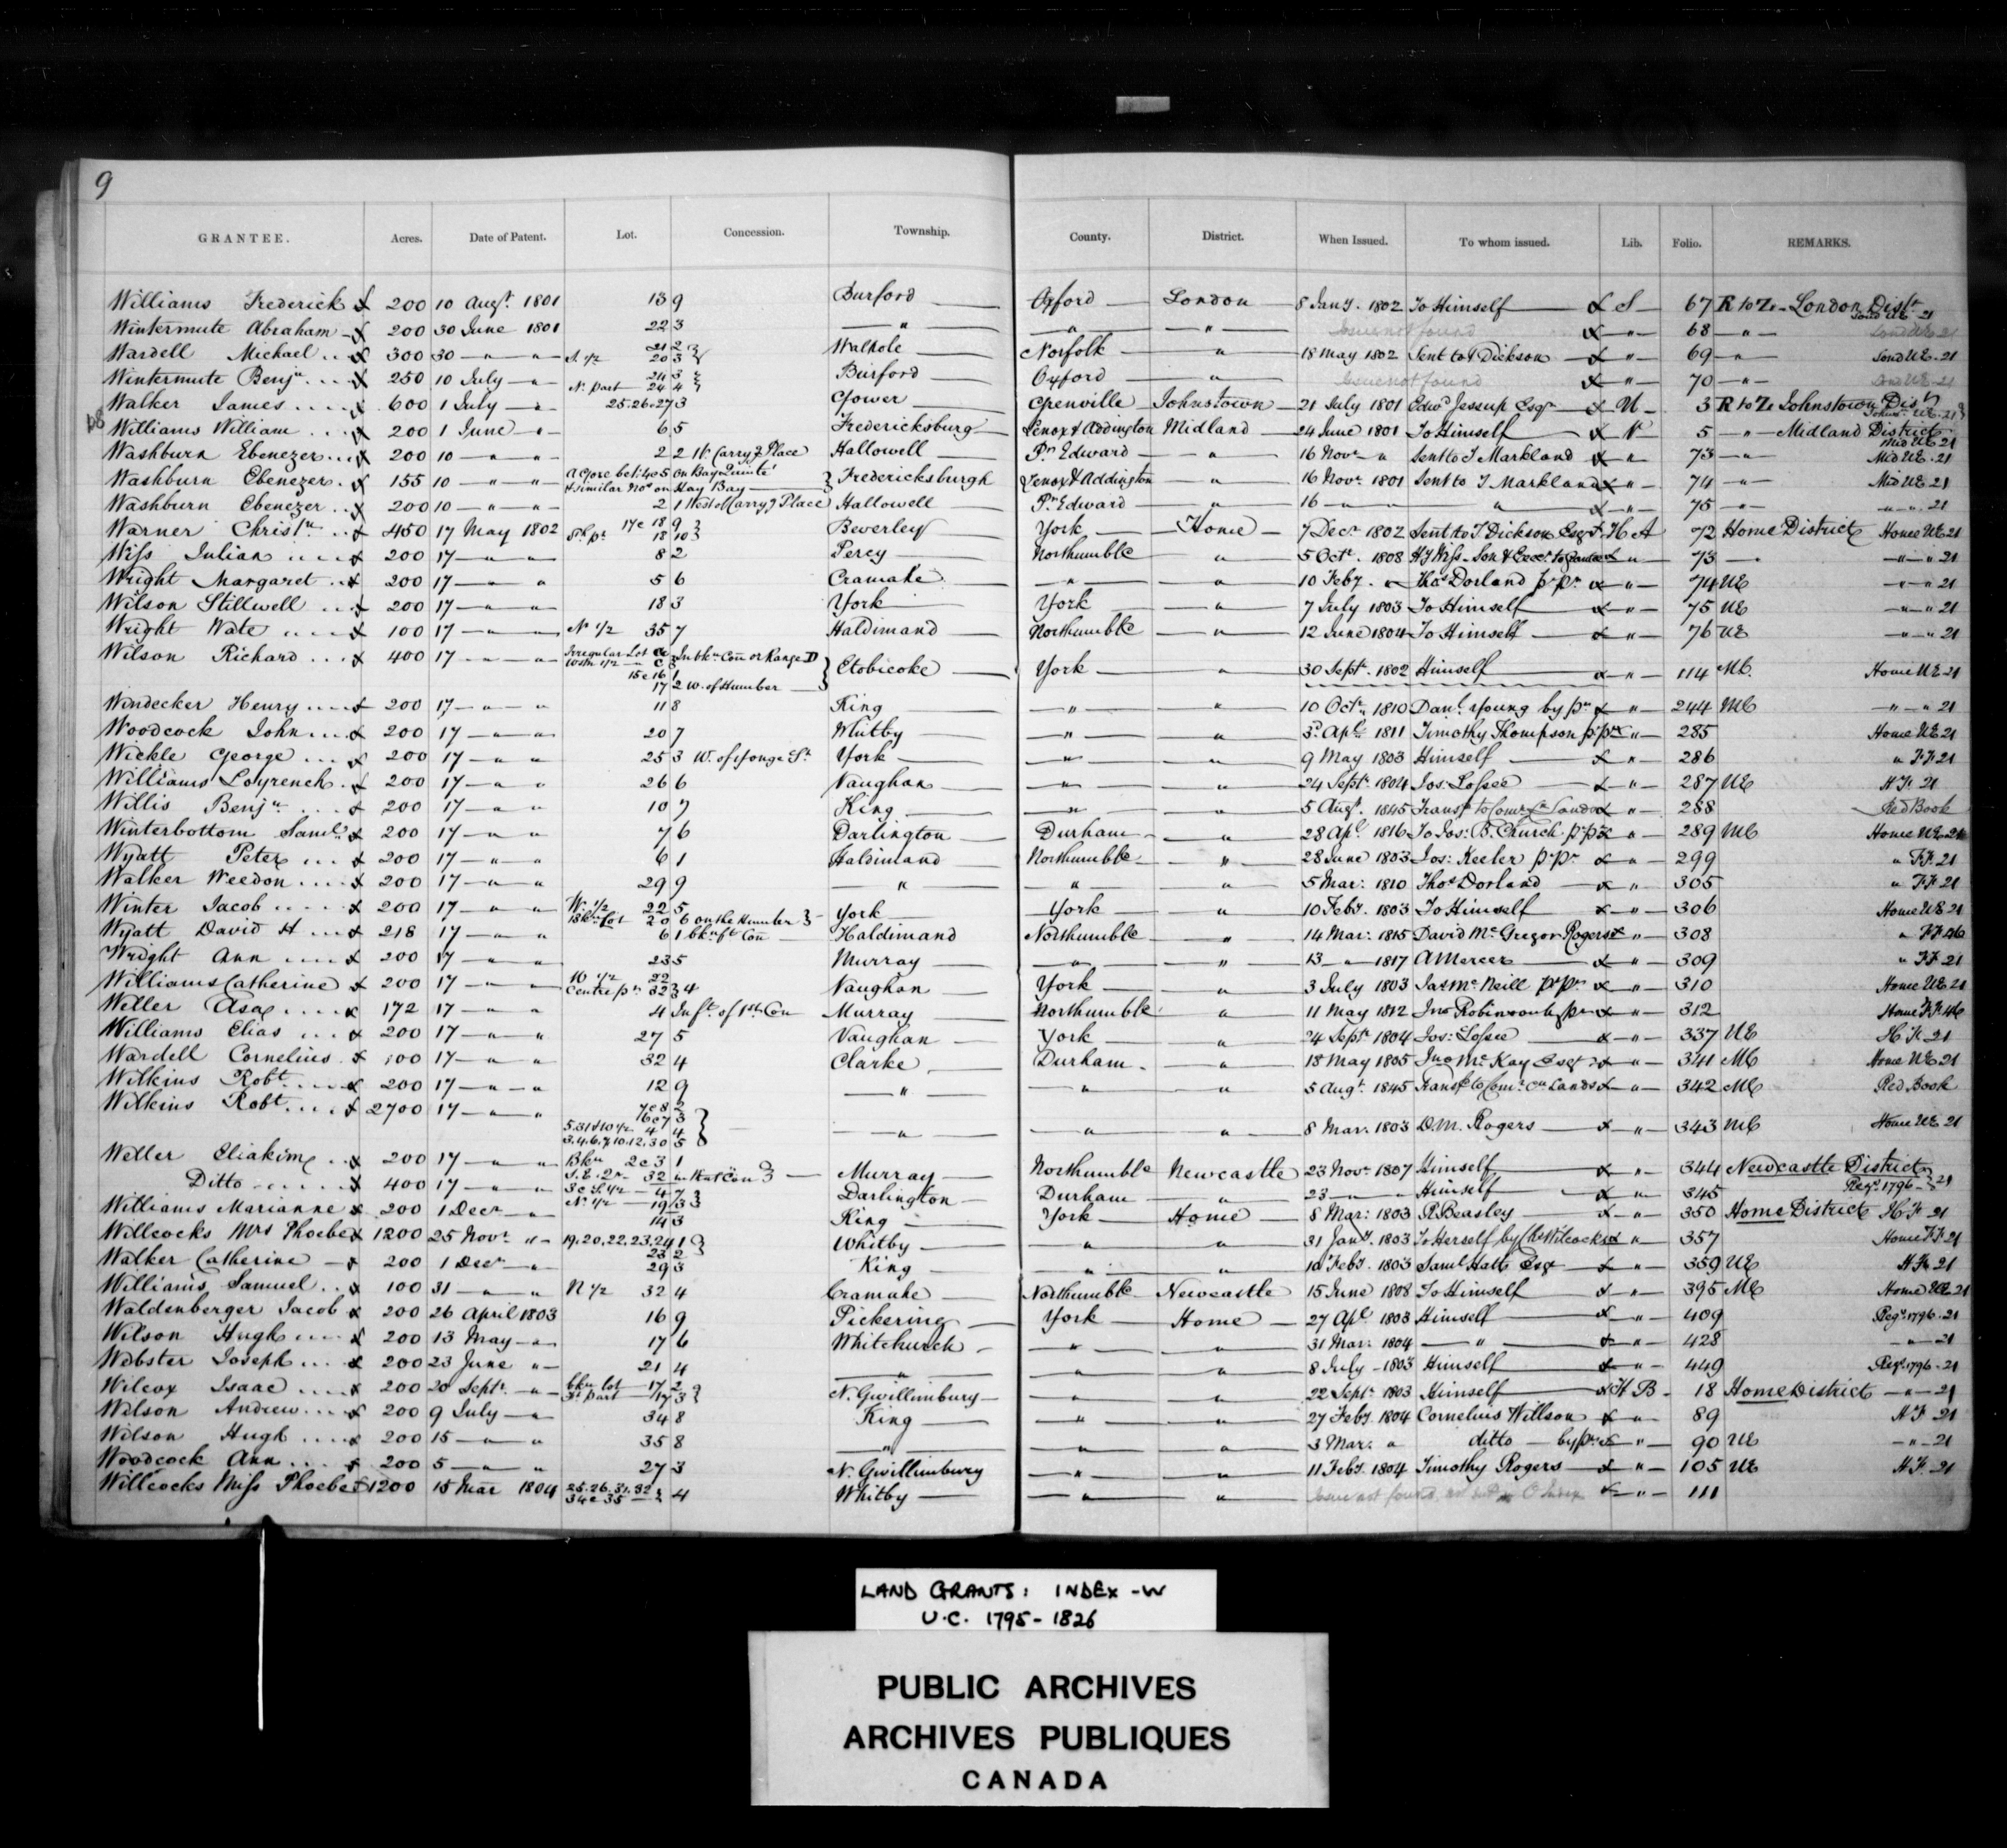 9
GRANTEE. Acres. Date of Patent. Lot. Concession. Township. County. District. When Issued. To whom issued. Lib. Folio. REMARKS.
Williams Frederick 200 10 Augt. 1801 13 9 Burford Oxford London 8 Jany. 1802 To Himself S 67 R to Z London Distt. Lond UE 21
Wintermute Abraham 200 30 June 1801 22 3 " " " Issue not found " 68 " Lond UE 21
Wardell Michael 300 30 " " S. 1/2 21 2 20 3 Walpole Norfolk " 18 May 1802 Sent to T Dickson " 69 " Lond UE 21
Wintermute Benjn. 250 10 July " N. part 24 3 24 4 Burford Oxford " Issue not found " 70 " Lond UE 21
Walker James 600 1 July " 25.26.27 3 Gower Grenville Johnstown 21 July 1801 Edwd Jessup Esqr U 3 R to Z Johnstown Dist
Williams William 200 1 June " 6 5 Fredericksburg Lenox & Addington Midland 24 June 1801 To Himself N 5 " Midland District Mid UE 21
Washburn Ebenezer 200 10 " " 2 2 W. Carryg Place Hallowell Pr. Edward " 16 Novr " Sent to T Markland " 73 " Mid UE 21
Washburn Ebenezer 155 10 " " A Gore bet: 4 & 5 on Bay Quinté & similar Nos on Hay Bay Fredericksburgh Lenox & Addington " 16 Novr. 1801 Sent to T Markland " 74 " Mid UE 21
Washburn Ebenezer 200 10 " " 2 1 West of Carryg Place Hallowell Pr. Edward " 16 " " " 75 " " 21
Warner Christn. 450 17 May 1802 17 & 18 9 Sh. pt. 18 10 Beverley York Home 7 Decr 1802 Sent to T Dickson Esqr H A 72 Home District Home UE 21
Wiss Julian 200 17 " 8 2 Percy Northumbld " 5 Octr. 1808 " 73 " " 21
Wright Margaret 200 17 " " 5 6 Cramahe " " 10 Feby. " Thos Dorland pr. pr. " 74 UE " 21
Wilson Stillwell 200 17 " " 18 3 York York " 7 July 1803 To Himself " 75 UE " 21
Wright Wate 100 17 " " N 1/2 35 7 Haldimand Northumbld " 12 June 1804 To Himself " 76 UE " 21
Wilson Richard 400 17 " " Irregular Lot C In bkn. Con or Range D 15 & 16 1 17 2 W. of Humber Etobicoke York " 30 Sept. 1802 Himself " 114 MC Home UE 21
Windecker Henry 200 17 " " 11 8 King " " 10 Octr. 1810 Danl. Young by pr. " 244 MC " 21
Woodcock John 200 17 " " 20 7 Whitby " " 3d. Apl. 1811 Timothy Thompson pr. pr. " 285 Home UE 21
Wickle George 200 17 " " 25 3 W. of Yonge St York " " 9 May 1803 Himself " 286 " F.F. 21
Williams Loyrench 200 17 " " 26 6 Vaughan " " 24 Septr. 1804 Jos: Lossee " 287 UE H F. 21
Willis Benjn. 200 17 " " 10 7 King " " 5 Augt. 1845 " 288 Red Book
Winterbottom Saml. 200 17 " " 7 6 Darlington Durham " 28 Apl. 1816 To Jos: B. Church pr. pr. " 289 MC Home UE 21
Wyatt Peter 200 17 " " 6 1 Haldimand Northumbld " 28 June 1803 Jos: Keeler pr. pr. " 299 " F.F. 21
Walker Weedon 200 17 " " 29 9 " " " 5 Mar: 1810 Thos Dorland " 305 " F.F. 21
Winter Jacob 200 17 " " W. 1/2 22 5 bkn Lot 20 6 on the Humber York York " 10 Feby. 1803 To Himself " 306 Home UE 21
Wyatt David H 218 17 " " 6 1 bkn ft Con Haldimand Northumbld " 14 Mar: 1815 David McGregor Rogers " 308 " F.F. 46
Wright Ann 200 17 " " 23 5 Murray " " 13 " 1817 A Mercer " 309 " F.F. 21
Williams Catherine 200 17 " " W 1/2 22 Centre pt. 32 4 Vaughan York " 3 July 1803 Jas McNeill pr. pr. " 310 Home UE 21
Weller Asa 172 17 " " 4 In ft. of 1st. Con Murray Northumbld " 11 May 1812 Jno Robinson by pr. " 312 Home F.F. 46
Williams Elias 200 17 " " 27 5 Vaughan York " 24 Septr 1804 Jos: Lossee " 337 UE H F. 21
Wardell Cornelius 100 17 " " 32 4 Clarke Durham " 18 May 1805 Jno McKay Esqr " 341 MC Home UE 21
Wilkins Robt. 200 17 " " 12 9 " " " 5 Augt. 1845 Transfd to Comr. Cn Lands " 342 MC Red Book
Wilkins Robt. 2700 17 " " 7 & 8 2 16 & 7 3 5.31 & 10 1/2 4 4 3.4.6.7.10.12.30 5 " " " 8 Mar. 1803 D.M. Rogers " 343 MC Home UE 21
Weller Eliakim 200 17 " " Bkn 2 & 3 1 S.E. 2r. 32 in that Con Murray Northumbld Newcastle 23 Novr. 1807 Himself " 344 Newcastle District
Ditto 400 17 " " 3 & S. 1/2 4 7 N. 1/2 19 3 Darlington Durham " 23 " " Himself " 345 Regr. 1796 21
Williams Marianne 200 1 Decr " 14 3 King York Home 8 Mar: 1803 R Beasley " 350 Home District H F. 21
Willcocks Mrs Phoebe 1200 25 Novr. " 19.20.22.23.24 1 23 2 Whitby " " 31 Jany. 1803 To Herself by Chs Wilcocks " 357 Home F.F. 21
Walker Catherine 200 1 Decr " 29 3 King " " 10 Feby. 1803 Saml Hatt Esqr " 359 UE H F. 21
Williams Samuel 100 31 " " N 1/2 32 4 Cramahe Northumbld Newcastle 15 June 1808 To Himself " 395 MC Home UE 21
Waldenberger Jacob 200 26 April 1803 16 9 Pickering York Home 27 Apl. 1803 Himself " 409 Regr. 1796 21
Wilson Hugh 200 13 May " 17 6 Whitchurch " " 31 Mar: 1804 " " 428 " 21
Webster Joseph 200 23 June " 21 4 " " " 8 July 1803 Himself " 449 Regr. 1796 21
Wilcox Isaac 200 20 Septr. " bkn lot 17 2 pt part 17 3 N. Gwillimbury " " 22 Septr. 1803 Himself H B 18 Home District " 21
Wilson Andrew 200 9 July " 34 8 King " " 27 Feby. 1804 Cornelius Willson " 89 H F 21
Wilson Hugh 200 15 " " 35 8 " " " 3 Mar: " ditto by pr. " 90 UE " 21
Woodcock Ann 200 5 " " 27 3 N. Gwillimbury " " 11 Feby. 1804 Timothy Rogers " 105 UE H F. 21
Willcocks Miss Phoebe 1200 15 Mar 1804 25.26.31.32 34 & 35 4 Whitby " " Issue not found " 111
LAND GRANTS: INDEX -W
U.C. 1795-1826
PUBLIC ARCHIVES
ARCHIVES PUBLIQUES
CANADA